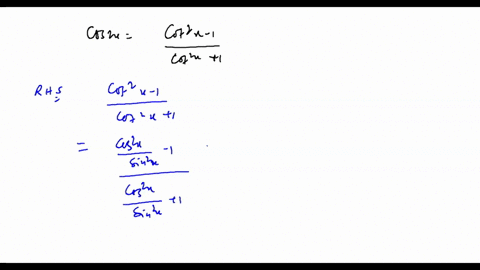 Cos2x = Cot²x-1 / Cot²x +1
RHS Cot²x-1 / Cot²x +1
= Cos²x/Sin²x -1 / Cos²x/Sin²x +1